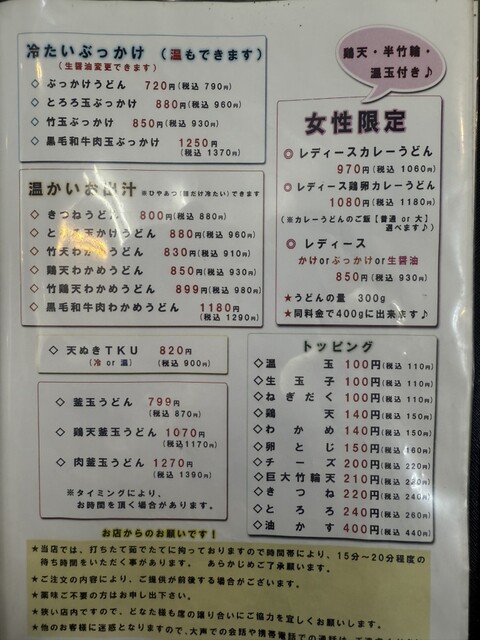 冷たいぶっかけ (温もできます)
(生醤油変更できます)
◇ ぶっかけうどん 720円(税込 790円)
◇ とろろ玉ぶっかけ 880円(税込 960円)
◇ 竹玉ぶっかけ 850円(税込 930円)
◇ 黒毛和牛肉玉ぶっかけ 1250円
(税込 1370円)
温かいお出汁 ※ひやあつ(麺だけ冷たい)できます
◇ きつねうどん 800円(税込 880円)
◇ とろろ玉かけうどん 880円(税込 960円)
◇ 竹天わかめうどん 830円(税込 910円)
◇ 鶏天わかめうどん 850円(税込 930円)
◇ 竹鶏天わかめうどん 899円(税込 980円)
◇ 黒毛和牛肉わかめうどん 1180円
(税込 1290円)
◇ 天ぬきTKU 820円
(冷 or 温) (税込 900円)
◇ 釜玉うどん 799円
(税込 870円)
◇ 鶏天釜玉うどん 1070円
(税込1170円)
◇ 肉釜玉うどん 1270円
(税込 1390円)
※タイミングにより、
お時間を頂く場合があります。
鶏天・半竹輪・
温玉付き♪
女性限定
◎ レディースカレーうどん
970円(税込 1060円)
◎ レディース鶏卵カレーうどん
1080円(税込 1180円)
(※カレーうどんのご飯【普通 or 大】
選べます♪)
◎ レディース
かけorぶっかけor生醤油
850円(税込 930円)
★うどんの量 300g
★同料金で400gに出来ます♪
トッピング
◇温玉 100円(税込 110円)
◇生玉子 100円(税込 110円)
◇ねぎだく 100円(税込 110円)
◇鶏天 140円(税込 150円)
◇わかめ 140円(税込 150円)
◇卵とじ 150円(税込 160円)
◇チーズ 200円(税込 220円)
◇巨大竹輪天 210円(税込 230円)
◇きつね 220円(税込 240円)
◇とろろ 240円(税込 260円)
◇油かす 400円(税込 440円)
お店からのお願いです!
★当店では、打ちたて茹でたてに拘っておりますので時間帯により、15分~20分程度の
待ち時間をいただく事があります。 あらかじめご了承願います。
★ご注文の内容により、ご提供が前後する場合がございます。
★薬味ご不要の方はお申し出下さい。
★狭い店内ですので、どなた様も席の譲り合いにご協力を宜しくお願いします。
★他のお客様に迷惑となりますので、大声での会話や携帯電話での通話は